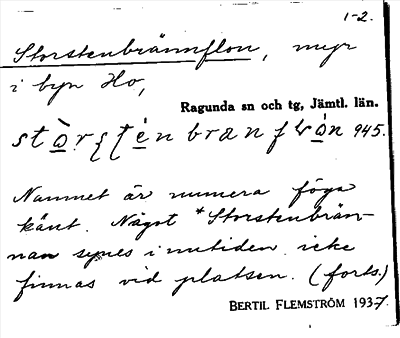 1-2.
Storstenbrännflon, myr
i byn Ho,
Ragunda sn och tg, Jämtl. län.
945.
Namnet är numera föga
känt. Något *Storstenbrän-
nan synes i nutiden icke
finnas vid platsen. (forts.)
BERTIL FLEMSTRÖM 1937.